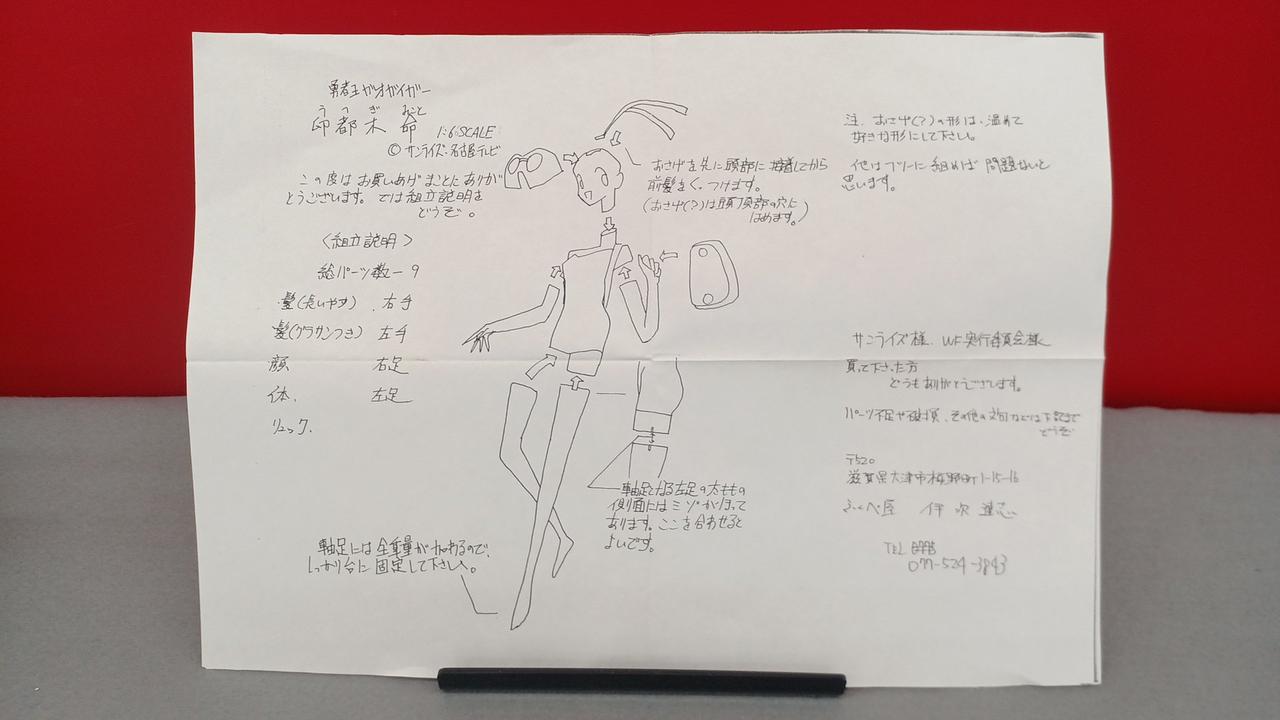 勇者王ガオガイガー
うつぎ みこと
卯都木 命 1:6 SCALE
© サンライズ・名古屋テレビ
この度はお買いあげまことにありが
とうございます。では組立説明を
どうぞ。
〈組立説明〉
総パーツ数ー9
髪(長いやつ)、右手
髪(グラサンつき) 左手
顔 右足
体、 左足
リュック、
おさげを先に頭部に接着してから
前髪をくっつけます。
(おさげ(?)は頭頂部の穴に
はめます。)
軸足となる左足の太ももの
側面にはミゾがほって
あります。ここを合わせると
よいです。
軸足には全重量が加わるので、
しっかり台に固定して下さい。
注、おさげ(?)の形は、温めて
好きな形にして下さい。
他はフツーに組めば問題ないと
思います。
サンライズ様、WF実行委員会様
買って下さった方
どうもありがとうございます。
パーツ不足や破損、その他の文句などは下記まで
どうぞ
〒520
滋賀県大津市桜野町1-15-16
ふくべ屋
TEL
077-524-3843